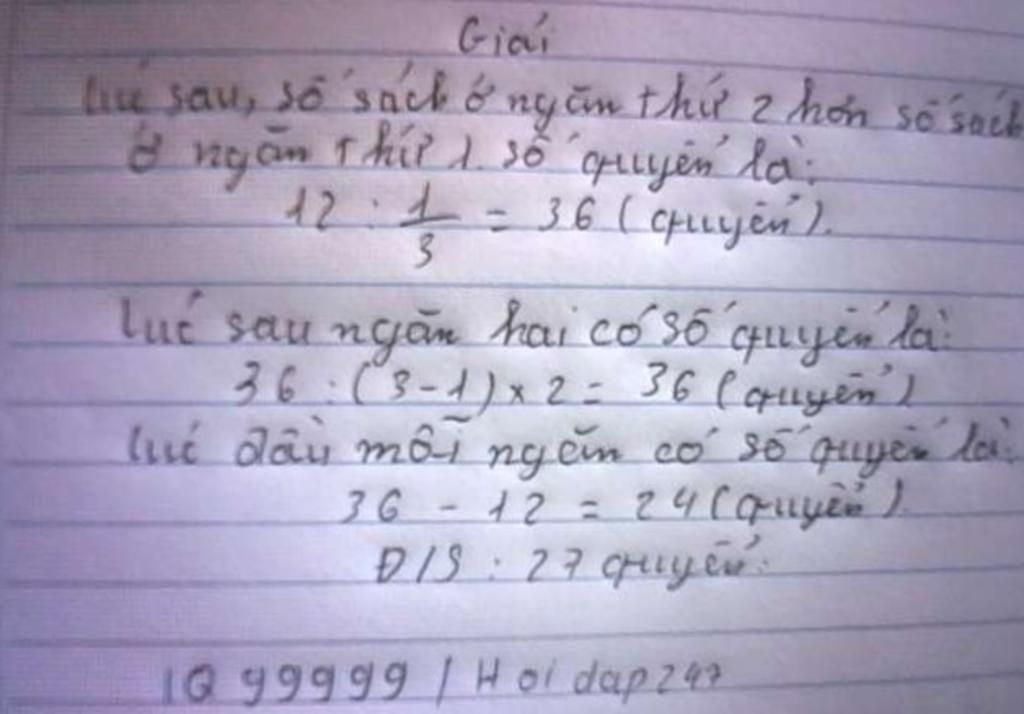 Giải
lúc sau, số sách ở ngăn thứ 2 hơn số sách
ở ngăn thứ 1 số quyển là:
12 : 1/3 = 36 (quyển).
lúc sau ngăn hai có số quyển là:
36 : (3-1) x 2 = 36 (quyển)
lúc đầu mỗi ngăn có số quyển là:
36 - 12 = 24 (quyển)
Đ/S : 27 quyển.
IQ 99999 / Hoi dap 247